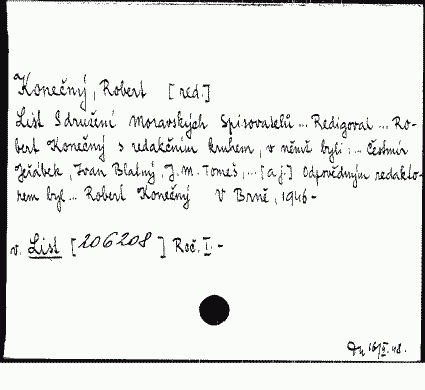 Konečný, Robert [red.]
List Sdružení Moravských Spisovatelů ... Redigoval ... Ro-
bert Konečný s redakčním kruhem, v němž byli: ... Čestmír
Jeřábek, Ivan Blatný, J. M. Tomeš, ... [a j.] Odpovědným redakto-
rem byl ... Robert Konečný V Brně, 1946 -
v. List [206208] Roč. I. -